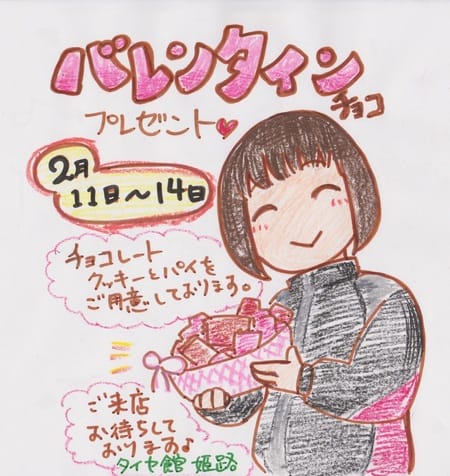 バレンタイン
チョコ
プレゼント♥
2月
11日～14日
チョコレート
クッキーとパイを
ご用意しております。
ご来店
お待ちして
おります♪
タイヤ館 姫路